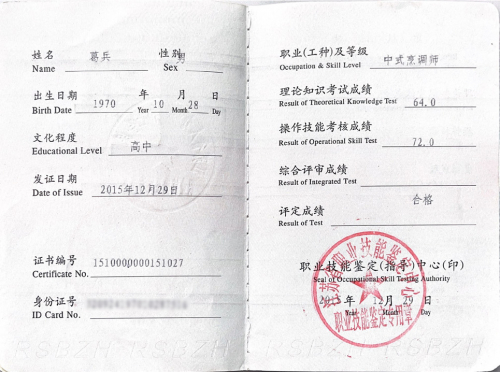 姓名 葛兵 性别 男
Name Sex
出生日期 1970 年 10 月 28 日
Birth Date Year Month Day
文化程度 高中
Educational Level
发证日期 2015年12月29日
Date of Issue
证书编号 1510000000151027
Certificate No.
身份证号
ID Card No.
职业(工种)及等级 中式烹调师
Occupation & Skill Level
理论知识考试成绩
Result of Theoretical Knowledge Test 64.0
操作技能考核成绩
Result of Operational Skill Test 72.0
综合评审成绩
Result of Integrated Test
评定成绩 合格
Result of Test
职业技能鉴定(指导)中心(印)
Seal of Occupational Skill Testing Authority
年 12 月 29 日
Year Month Day
职业技能鉴定专用章
RSBZH